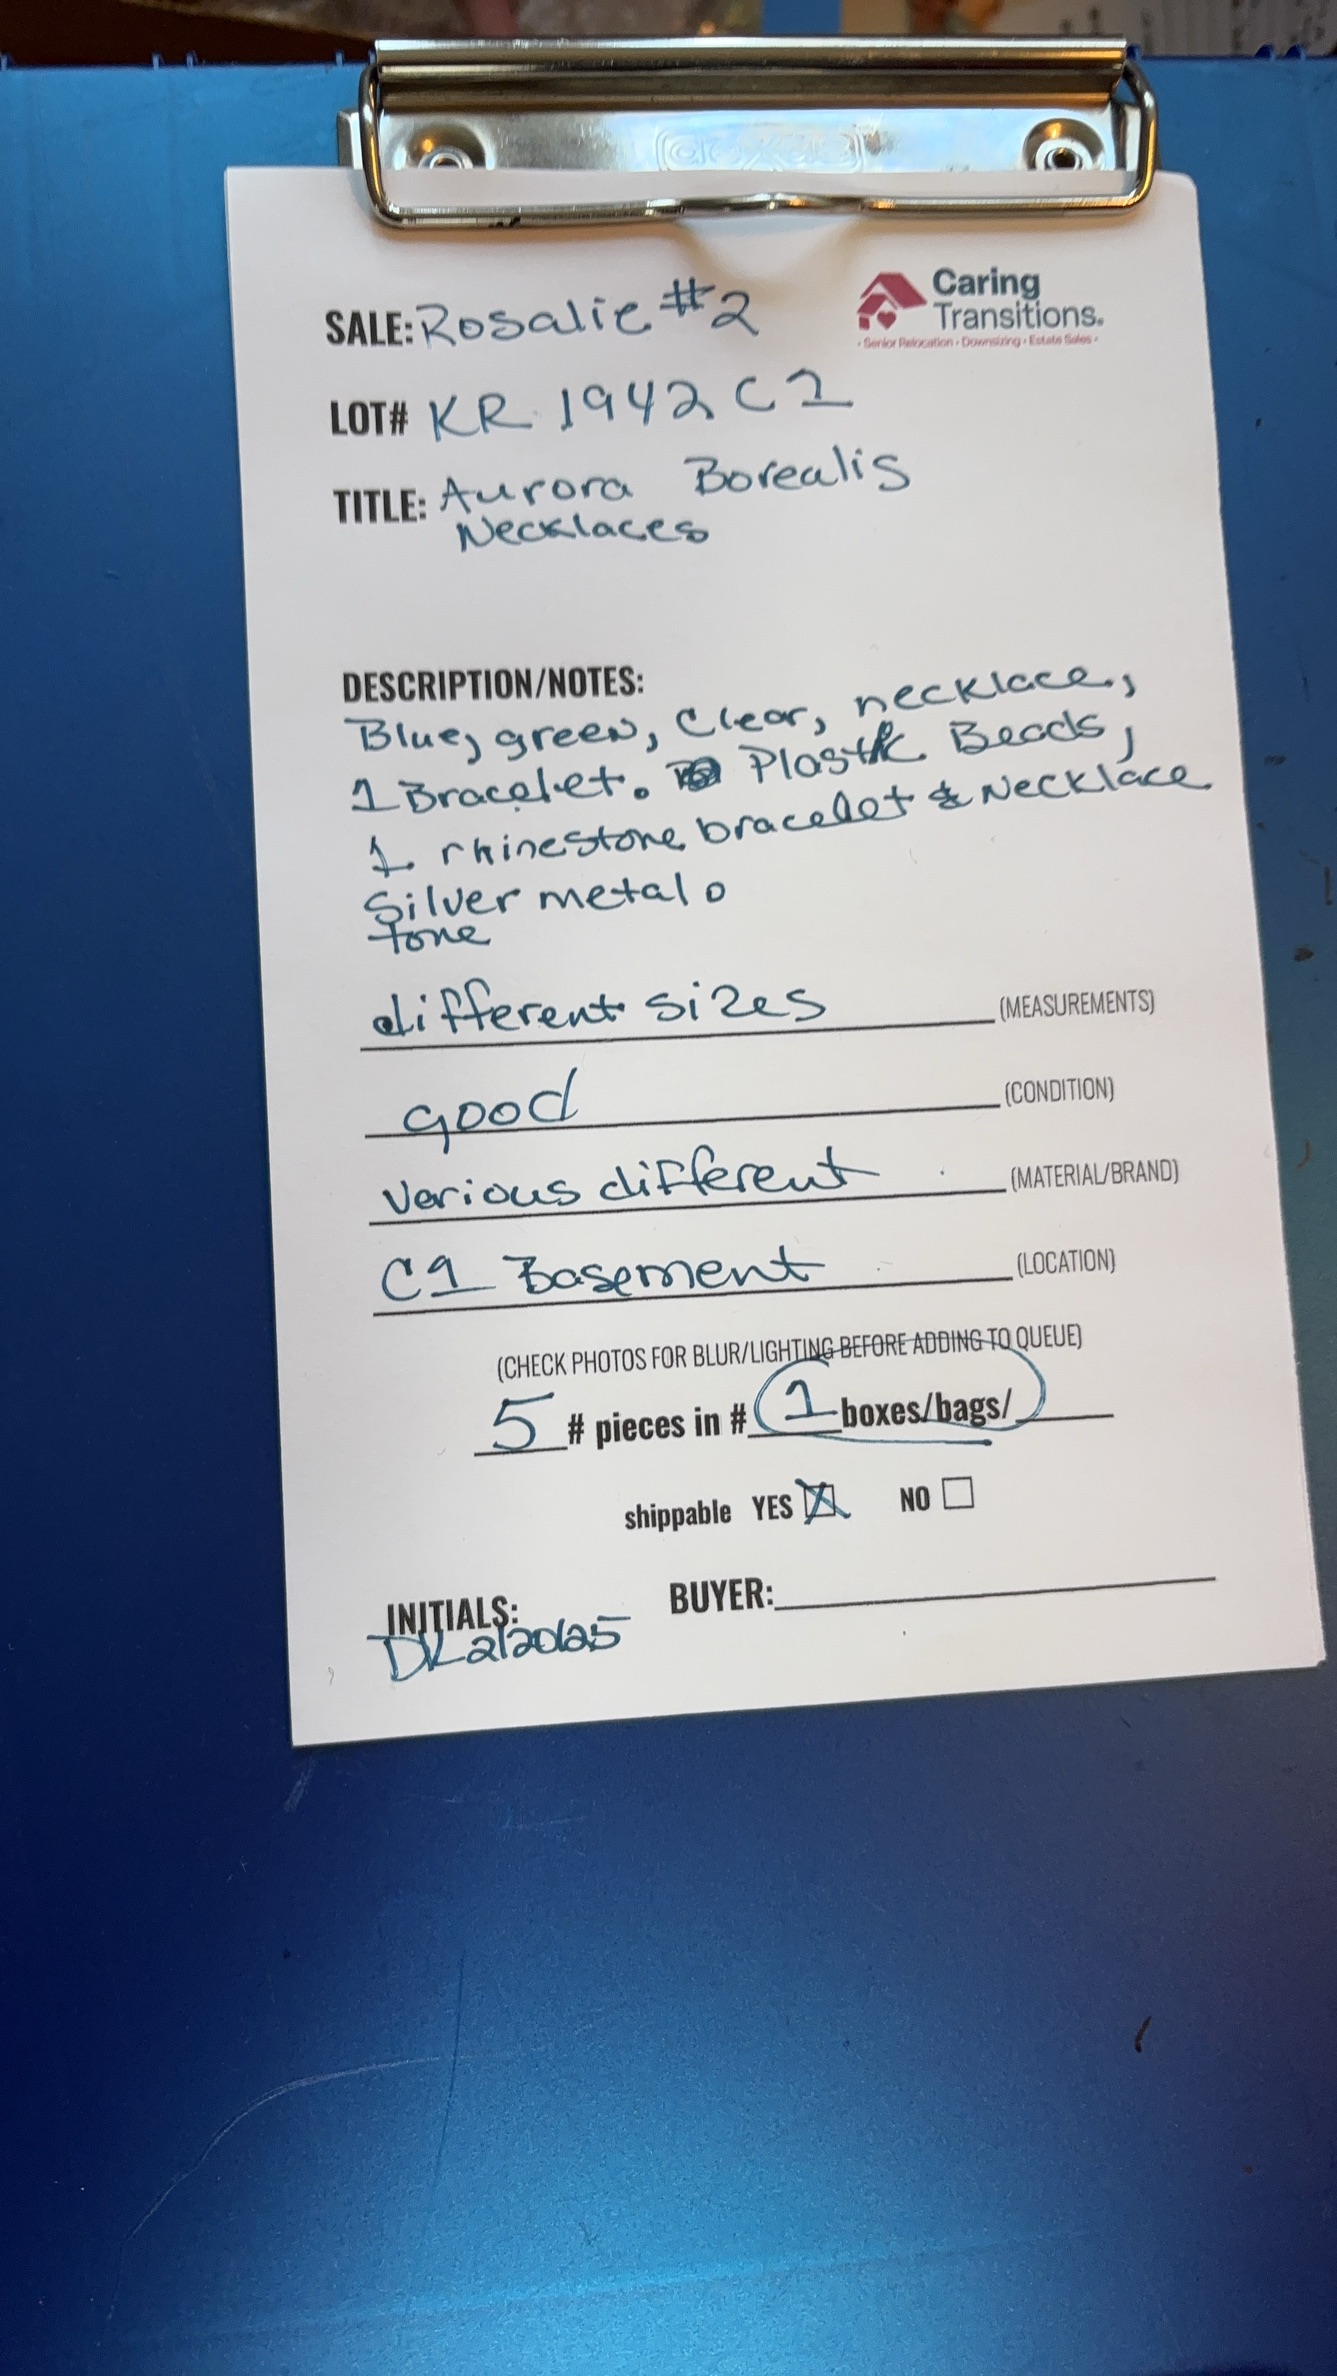 SALE: Rosalie #2
Caring
Transitions.
• Senior Relocation • Downsizing • Estate Sales •
LOT# KR 1942 C1
TITLE: Aurora Borealis
Necklaces
DESCRIPTION/NOTES:
Blue, green, Clear, necklace,
1 Bracelet. Plastic Beads,
1 rhinestone bracelet & Necklace
Silver metal
tone
different sizes (MEASUREMENTS)
good (CONDITION)
various different (MATERIAL/BRAND)
C1 Basement (LOCATION)
(CHECK PHOTOS FOR BLUR/LIGHTING BEFORE ADDING TO QUEUE)
5 # pieces in # 1 boxes/bags/
shippable YES NO
INITIALS: BUYER:
DK 2/20/25